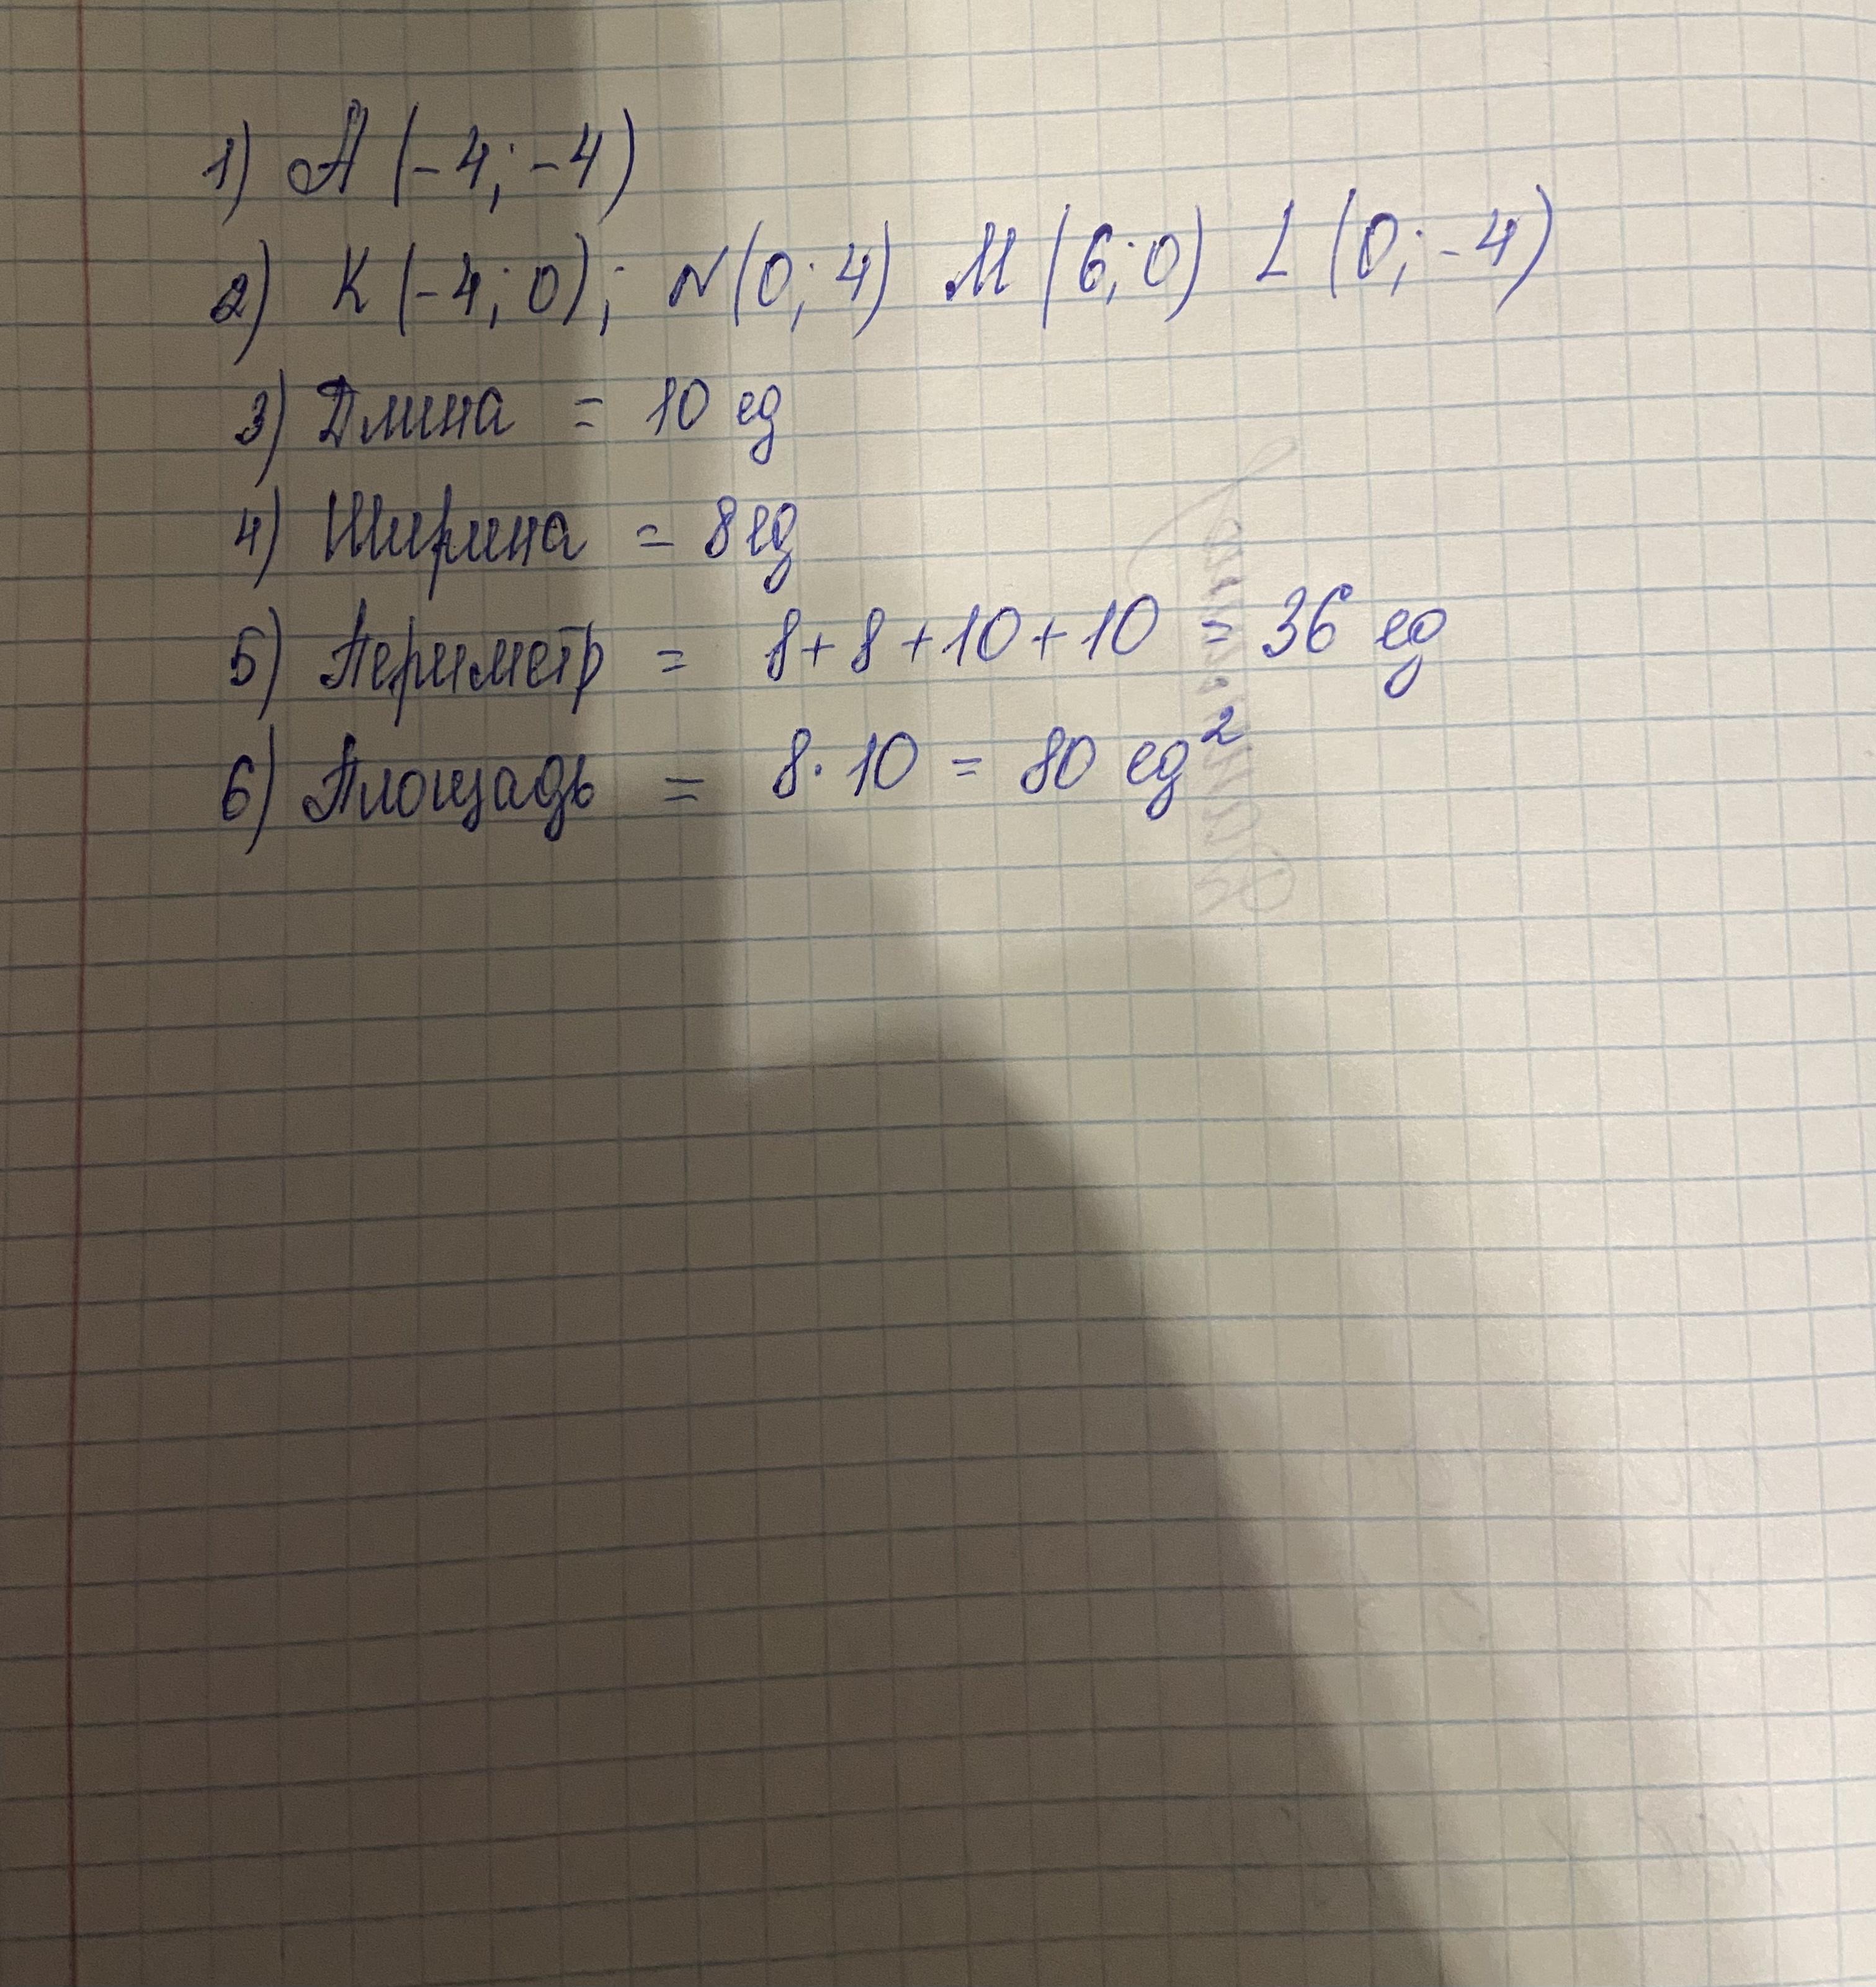 1) А (-4; -4)
2) K (-4; 0); N (0; 4) M (6; 0) L (0; -4)
3) Длина = 10 ед
4) Ширина = 8 ед
5) Периметр = 8+8+10+10 = 36 ед
6) Площадь = 8·10 = 80 ед²